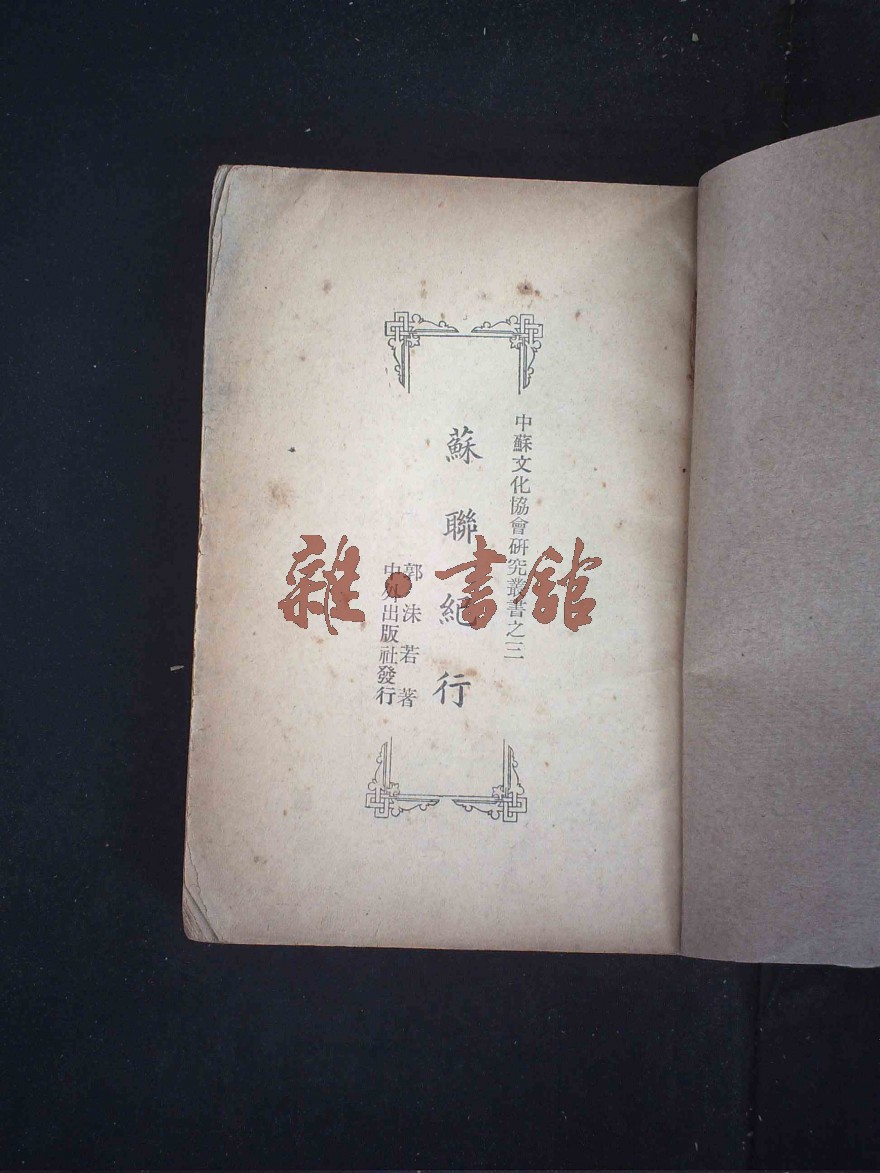 中蘇文化協會研究叢書之三
蘇聯紀行
郭沫若著
中外出版社發行
雜·書舘